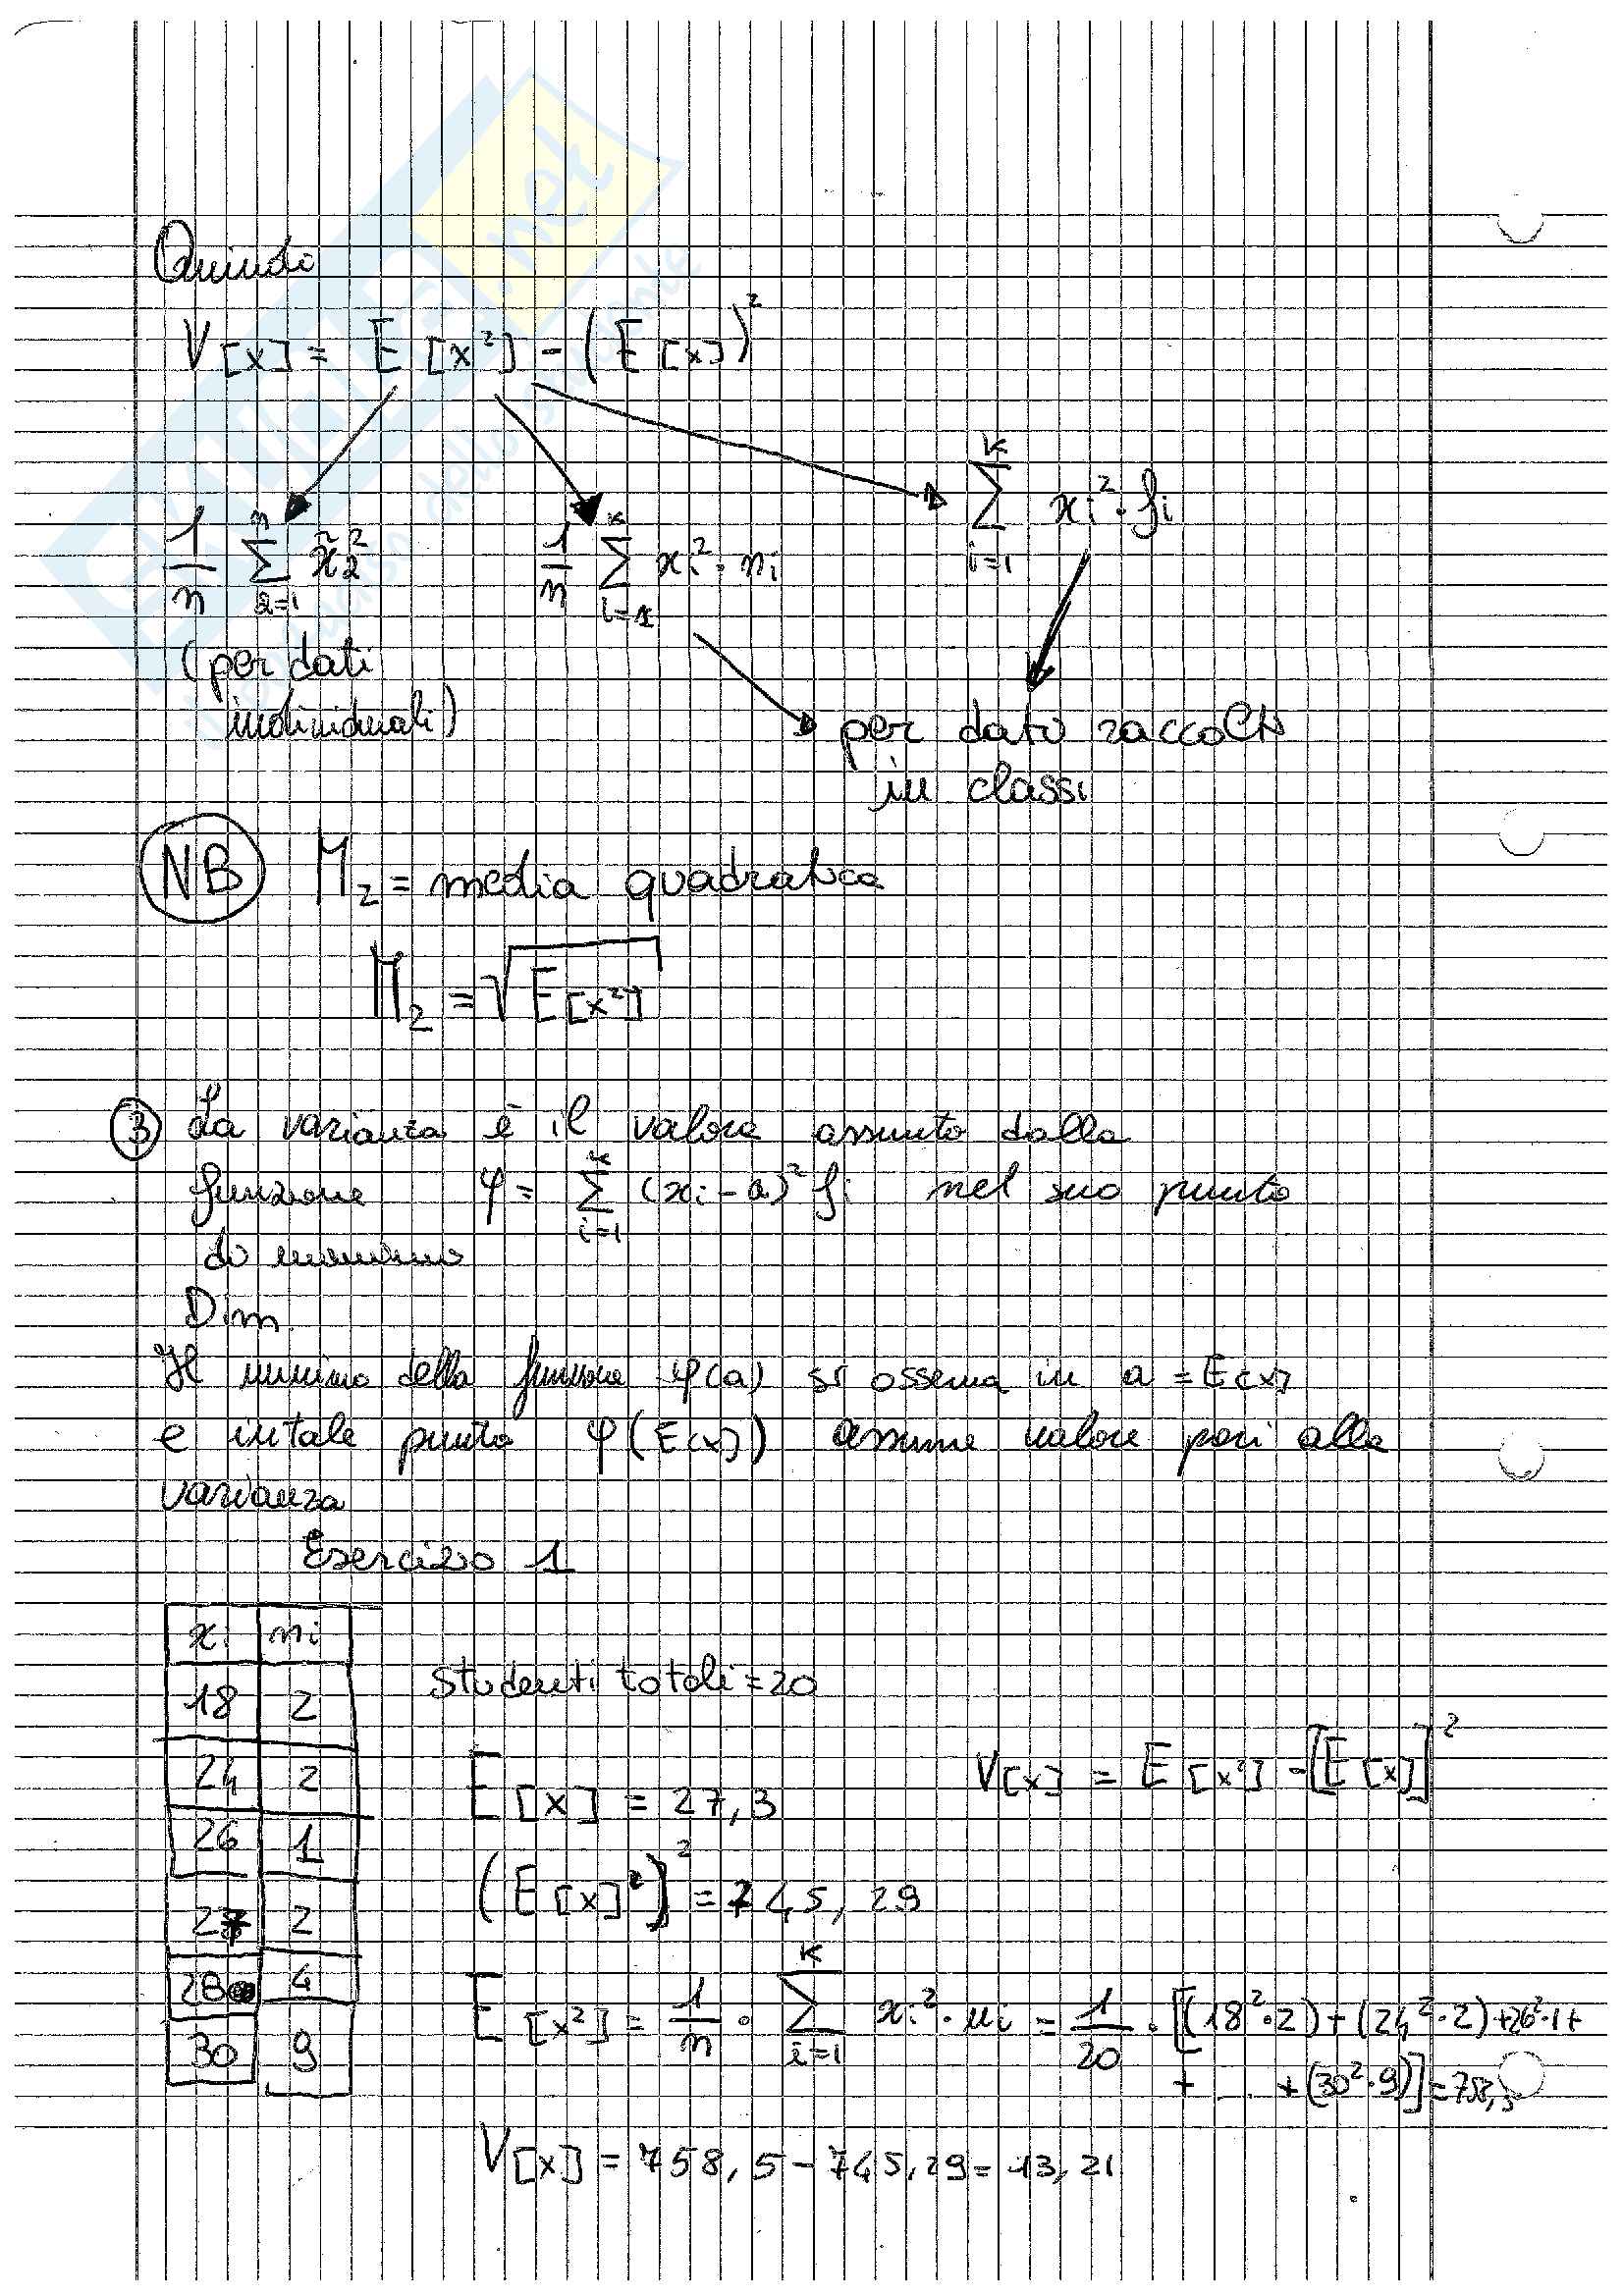 Quindi
V[x] = E[x²] - (E[x])²
1/n Σ_{i=1}^{n} x̃_i²
1/n Σ_{i=1}^{k} xi²·ni
Σ_{i=1}^{k} xi²·fi
(per dati individuali)
per dati raccolti
in classi
NB M₂ = media quadratica
M₂ = √E[x²]
③ La varianza è il valore assunto dalla
funzione φ = Σ_{i=1}^{k} (xi - a)² fi nel suo punto
di minimo
Dim.
Il minimo della funzione φ(a) si osserva in a = E[x]
e in tale punto φ(E[x]) assume valore pari alla
varianza
Esercizio 1
xi ni
18 2
24 2
26 1
27 2
28 4
30 9
Studenti totali = 20
E[x] = 27,3
V[x] = E[x²] - [E[x]]²
(E[x]²)² = 745,29
E[x²] = 1/n · Σ_{i=1}^{k} xi²·ni = 1/20 · [(18²·2) + (24²·2) + 26²·1 +
+ ... + (30²·9)] = 758,5
V[x] = 758,5 - 745,29 = 13,21
.net